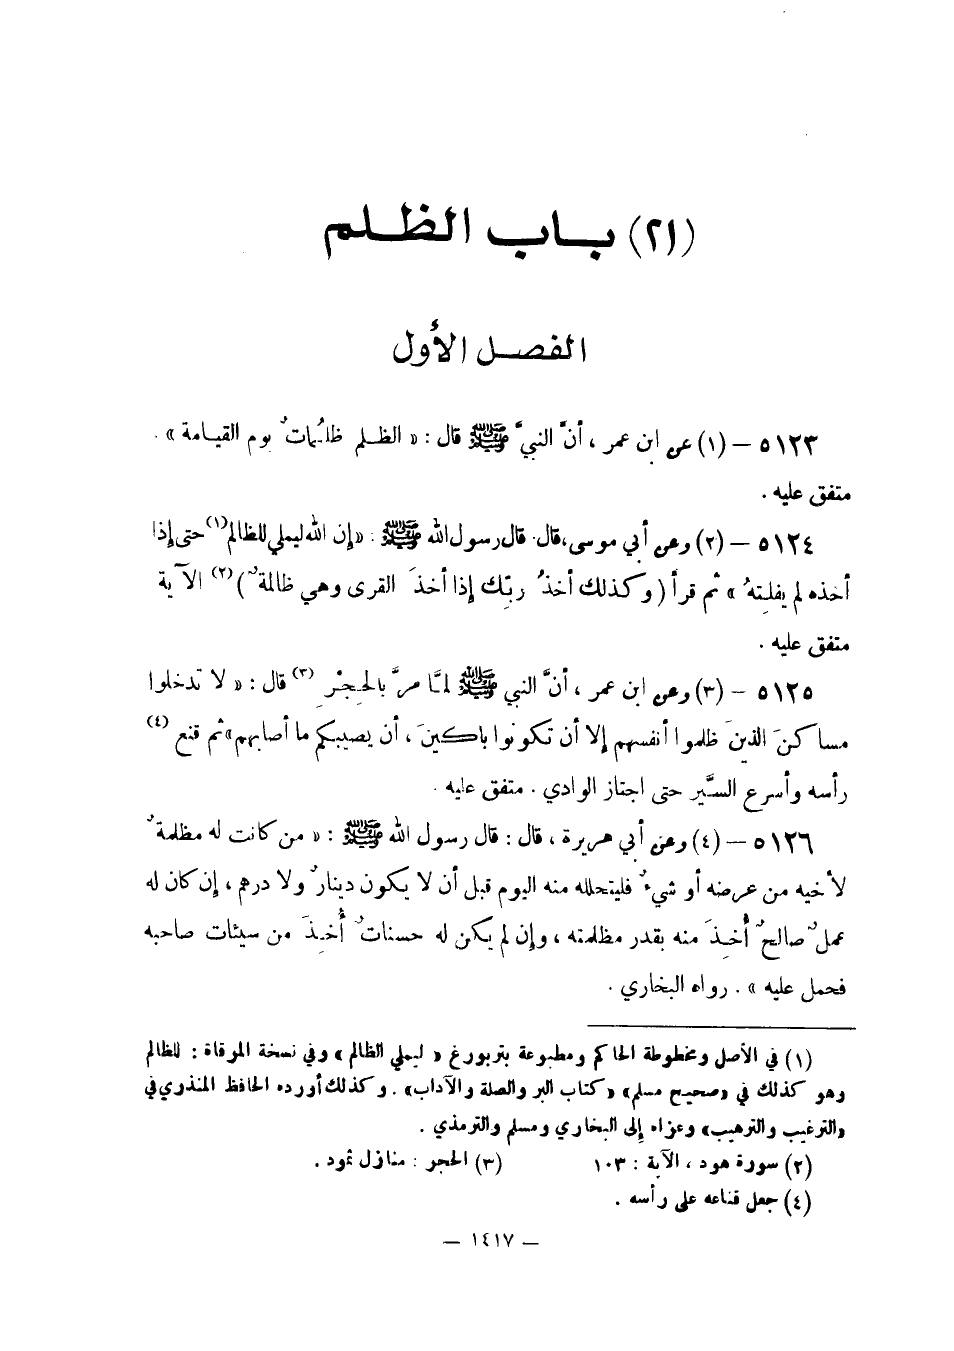 (٢١) باب الظلم
الفصل الأول
٥١٢٣ – (١) عن ابن عمر ، أنَّ النبيَّ ﷺ قال : « الظلم ظلُماتٌ يوم القيامة » .
متفق عليه .
٥١٢٤ – (٢) وعن أبي موسى، قال. قال رسول الله ﷺ : «إن الله ليملي للظالم(١) حتى إذا
أخذه لم يفلِتهُ » ثم قرأ (وكذلك أخذُ ربِّك إذا أخذَ القرى وهي ظالمةٌ)(٢) الآية
متفق عليه .
٥١٢٥ – (٣) وعن ابن عمر ، أنَّ النبي ﷺ لمَّا مرَّ بالحِجْرِ (٣) قال : « لا تدخلوا
مساكنَ الذينَ ظلموا أنفسهم إلا أن تكونوا باكينَ ، أن يصيبكم ما أصابهم» ثم قنع (٤)
رأسه وأسرع السَّير حتى اجتاز الوادي . متفق عليه .
٥١٢٦ – (٤) وعن أبي هريرة ، قال : قال رسول الله ﷺ : « من كانت له مظلمةٌ
لأخيه من عرضه أو شيءٌ فليتحلله منه اليوم قبل أن لا يكون دينارٌ ولا درهم ، إن كان له
عملٌ صالحٌ أُخِذَ منه بقدر مظلمته ، وإن لم يكن له حسناتٌ أُخِذَ من سيئات صاحبه
فحمل عليه » . رواه البخاري .
(١) في الأصل ومخطوطة الحاكم ومطبوعة بتربورغ « ليملي الظالم » وفي نسخة المرقاة : للظالم
وهو كذلك في «صحيح مسلم» «كتاب البر والصلة والآداب» . وكذلك أورده الحافظ المنذري في
«الترغيب والترهيب» وعزاه إلى البخاري ومسلم والترمذي .
(٢) سورة هود ، الآية : ١٠٣ (٣) الحجر : منازل ثمود .
(٤) جعل قناعه على رأسه .
– ١٤١٧ –